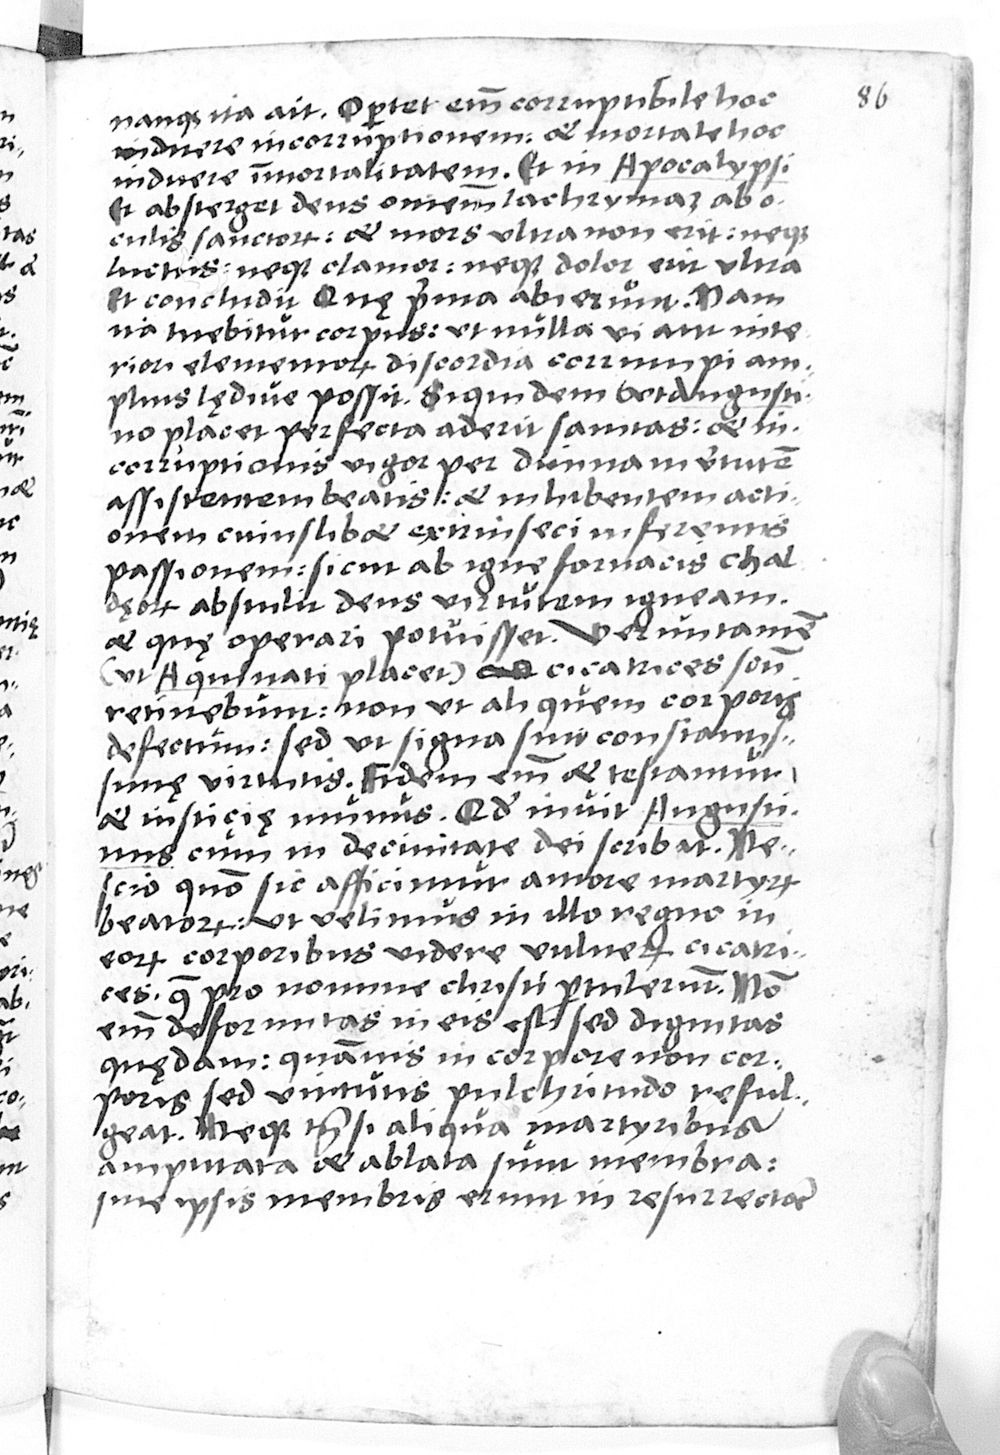 86
namqꝫ ita ait. Oꝑtet em̄ corruptibile hoc
induere incorruptionem: & mortale hoc
induere īmortalitatem. Et in Apocalypsi
Et absterget deus omem̄ lachrymaꝫ ab o-
culis sanctorꝝ: & mors ultra non erit: neqꝫ
luctus: neqꝫ clamor: neqꝫ dolor erit ultra
Et concludit Quę p̄ma abierunt. Nam
ita tuebitur corpus: ut nulla vi aut inte
riori elementorꝝ discordia corrumpi am-
plius lędive possit. Siquidem ut Augusti-
no placet perfecta aderit sanitas: & in-
corruptionis vigor per diuinam v̄tutē
assistentem beatis: & inhibentem acti-
onem cuiuslib& extrinseci inferentis
passionem: sicut ab igne fornacis chal
dęorꝝ abstulit deus virtutem igneam.
& quę operari potuisset. Veruntamē
(ut Aquinati placet) cicatrices soū
retinebunt: non ut aliquem corporis
defectum: sed ut signa sint constantis-
simę virtutis. Fidem em̄ & testantur
& iusticię munus. Qd' inuit Augusti-
nus cum in decimitate dei scribat. Ne-
scio quō sic afficimur amore martyrꝝ
beatorꝝ: ut velimus in illo regno in
eorꝝ corporibus videre vulnerꝝ cicatri-
ces. q̄ pro nomine christi ꝑtulerunt. Nō
em̄ deformitas in eis est: sed dignitas
quędam: quāuis in corpore non cor-
poris sed virtutis pulchritudo reful-
geat. Neqꝫ tn̄ si aliqua martyribus
amputata & ablata sunt membra:
sine ipsis membris erunt in resurrectōe